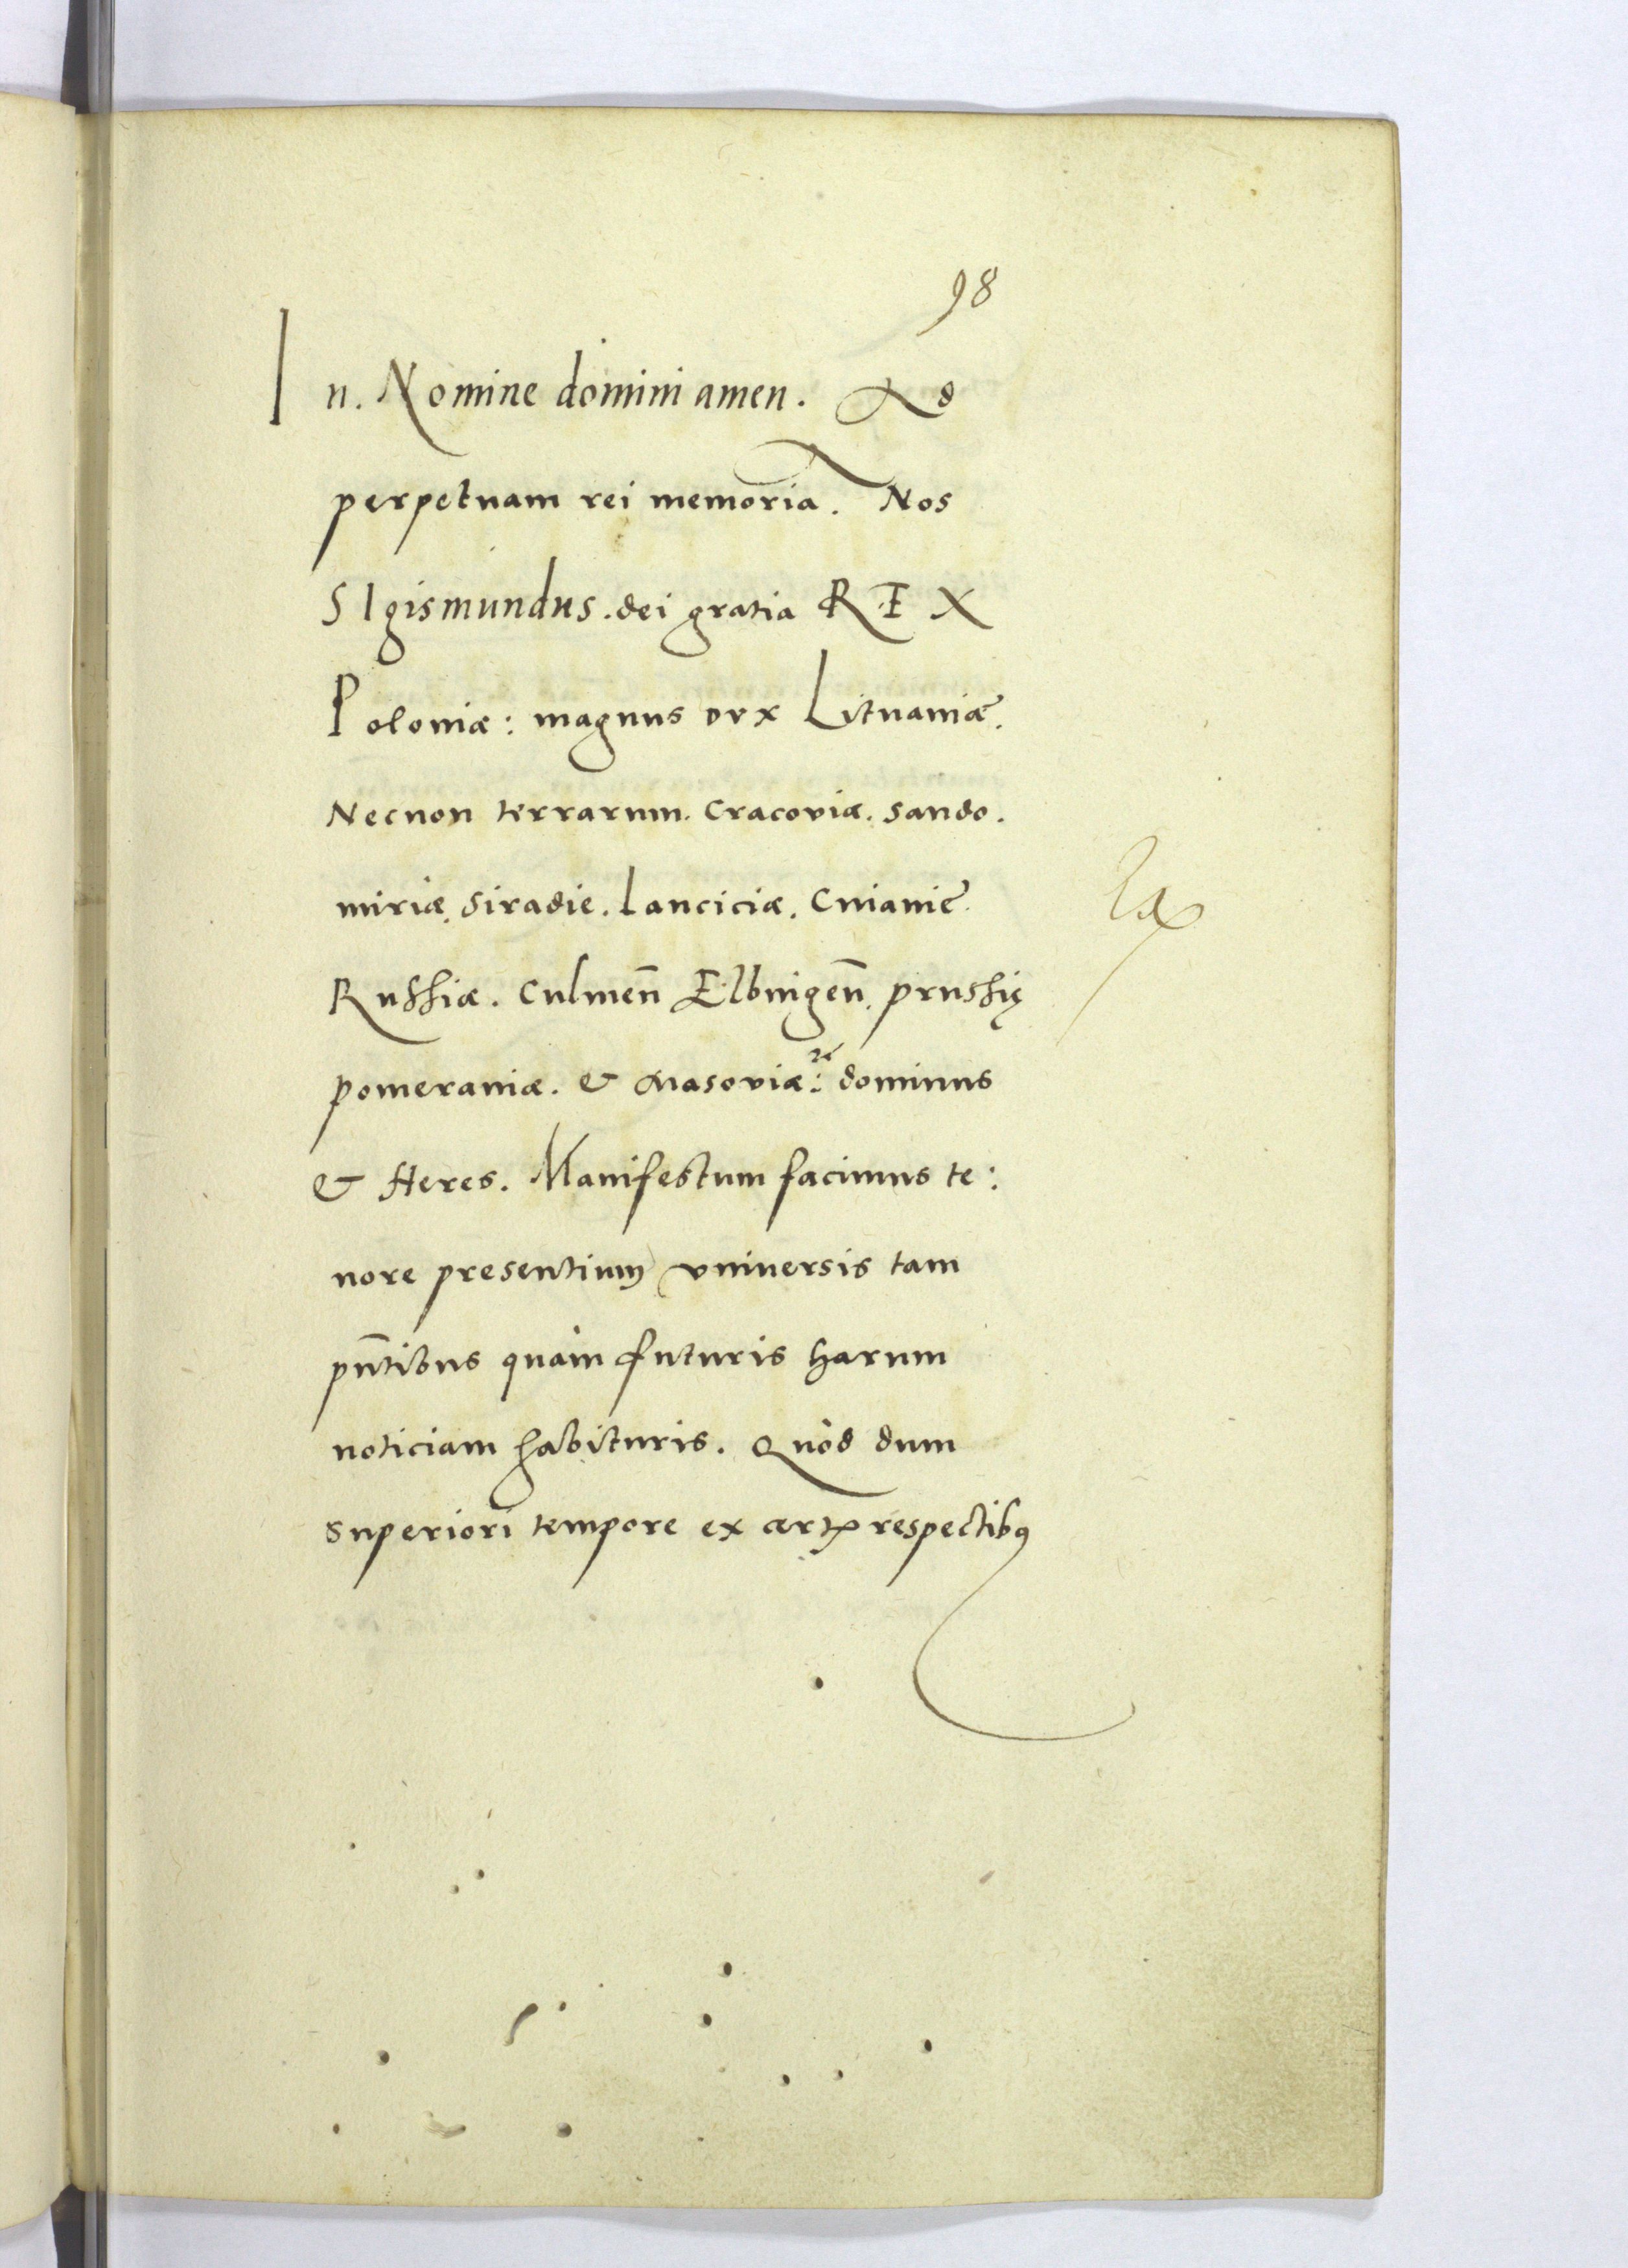 98
In. Nomine domini amen. Ad
perpetuam rei memoria. Nos
SIgismundus. dei gratia REX
Poloniæ: magnus Dvx Lituaniæ.
Necnon terrarum. Cracoviæ. Sando.
miriæ. Siradie. Lanciciæ. Cuianiæ.
Russiæ. Culmeñ Elbingeñ. prussię
pomeraniæ. & Masoviæ: dominus
& Heres. Manifestum facimus te:
nore presentium vniuersis tam
pñtibus quàm futuris harum
noticiam habituris. Quòd dum
superiori tempore ex respectibꝰ